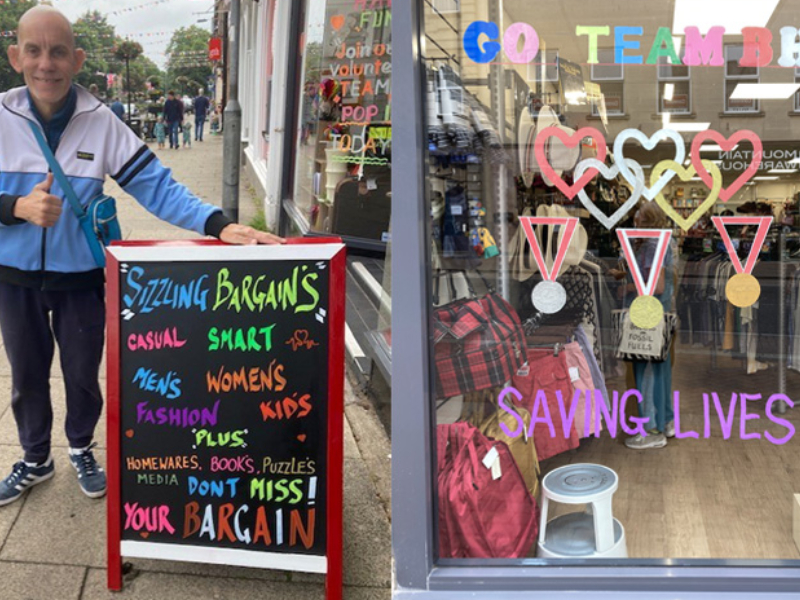 Sizzling Bargain's
Casual Smart
Men's Women's
Fashion Kid's
Plus
Homewares. Book's. Puzzle's
Media Dont Miss!
Your Bargain
Join us
Volunte
TEAM
POP I
TODAY
GO TEAM BH
MOUNTAIN
WAREHOUSE
FOSSIL
FUELS
SAVING LIVES